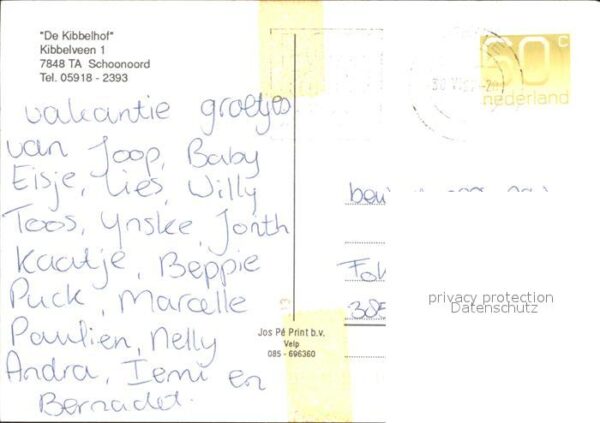 "De Kibbelhof"
Kibbelveen 1
7848 TA Schoonoord
Tel. 05918 - 2393
vakantie groetjes
van Joop, Baby
Eisje, Lies, Willy
Toos, Ynske, Jonth
Kaatje, Beppie
Puck, Marcelle
Paulien, Nelly
Andra, Iemi en
Bernadet.
60 c
nederland
Jos Pé Print b.v.
Velp
085 - 696360
privacy protection
Datenschutz